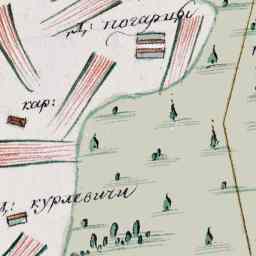 Д: погарищи
кар:
Д: курлевичи